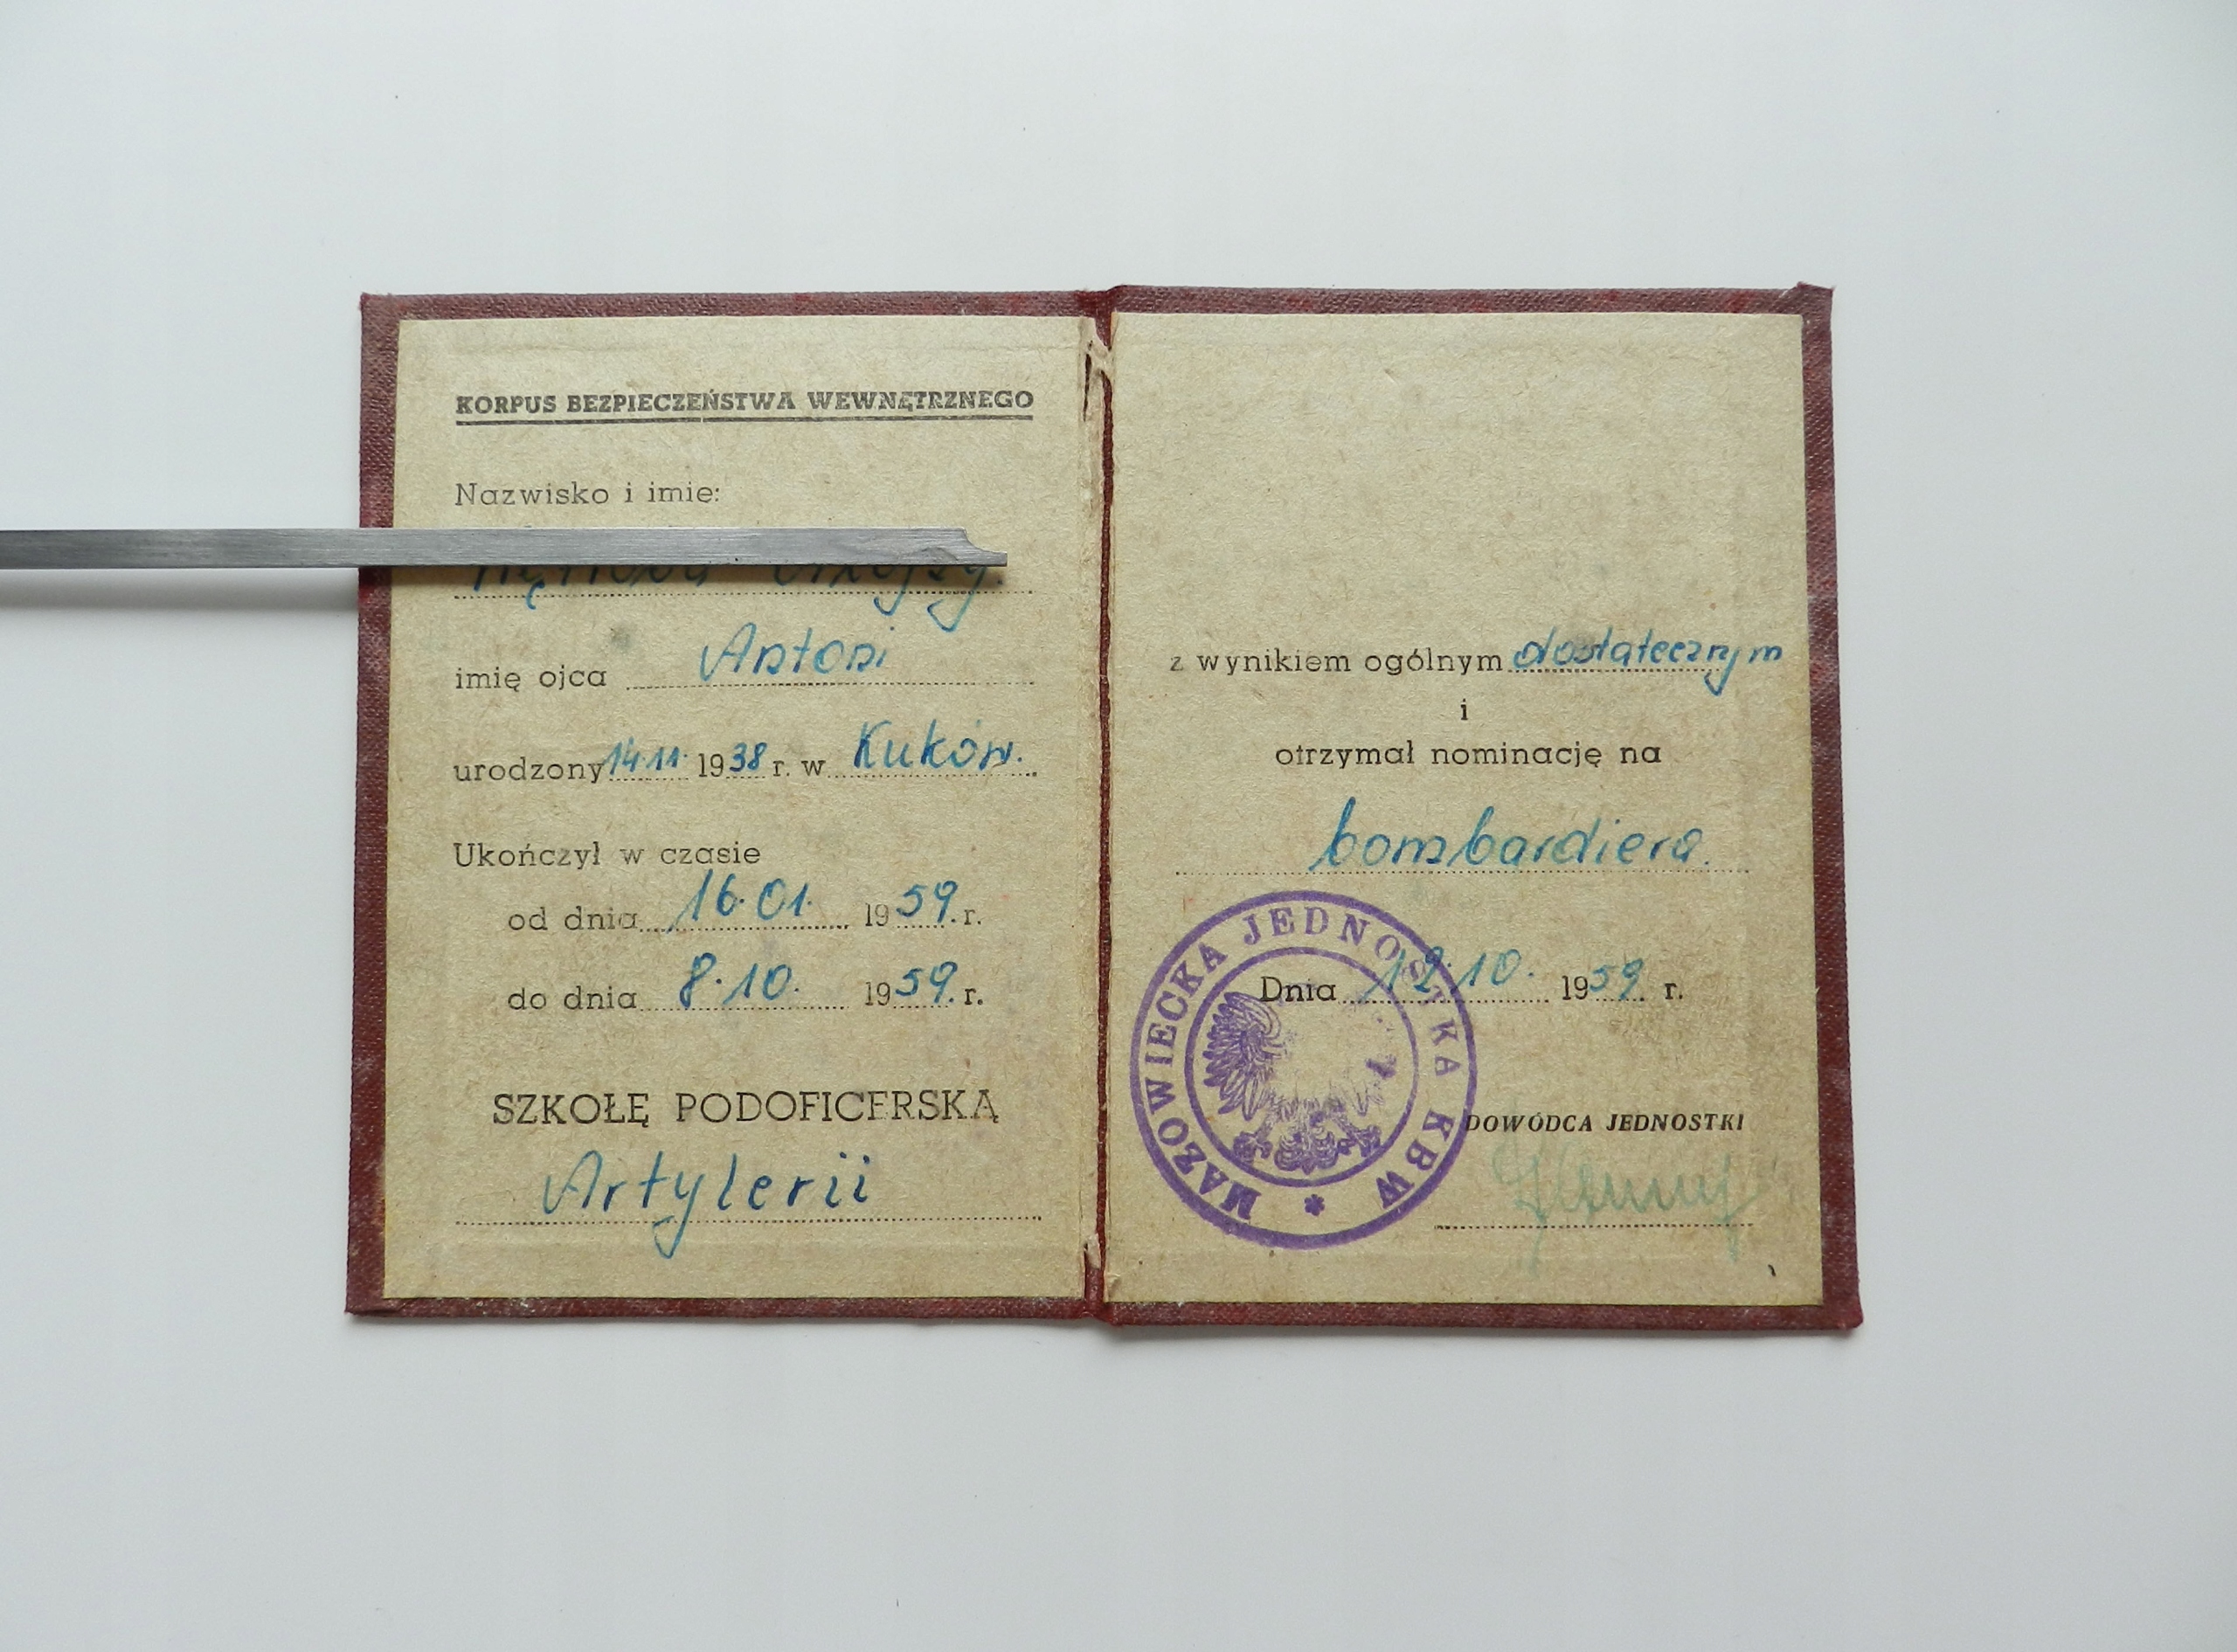 KORPUS BEZPIECZEŃSTWA WEWNĘTRZNEGO
Nazwisko i imie:
imię ojca Antoni
urodzony 14.11. 1938 r. w Kuków.
Ukończył w czasie
od dnia 16.01. 1959. r.
do dnia 8.10. 1959. r.
SZKOŁĘ PODOFICERSKĄ
Artylerii
z wynikiem ogólnym dostatecznym
i
otrzymał nominację na
bombardiera.
Dnia 12.10. 1959. r.
MAZOWIECKA JEDNOSTKA KBW *
DOWÓDCA JEDNOSTKI